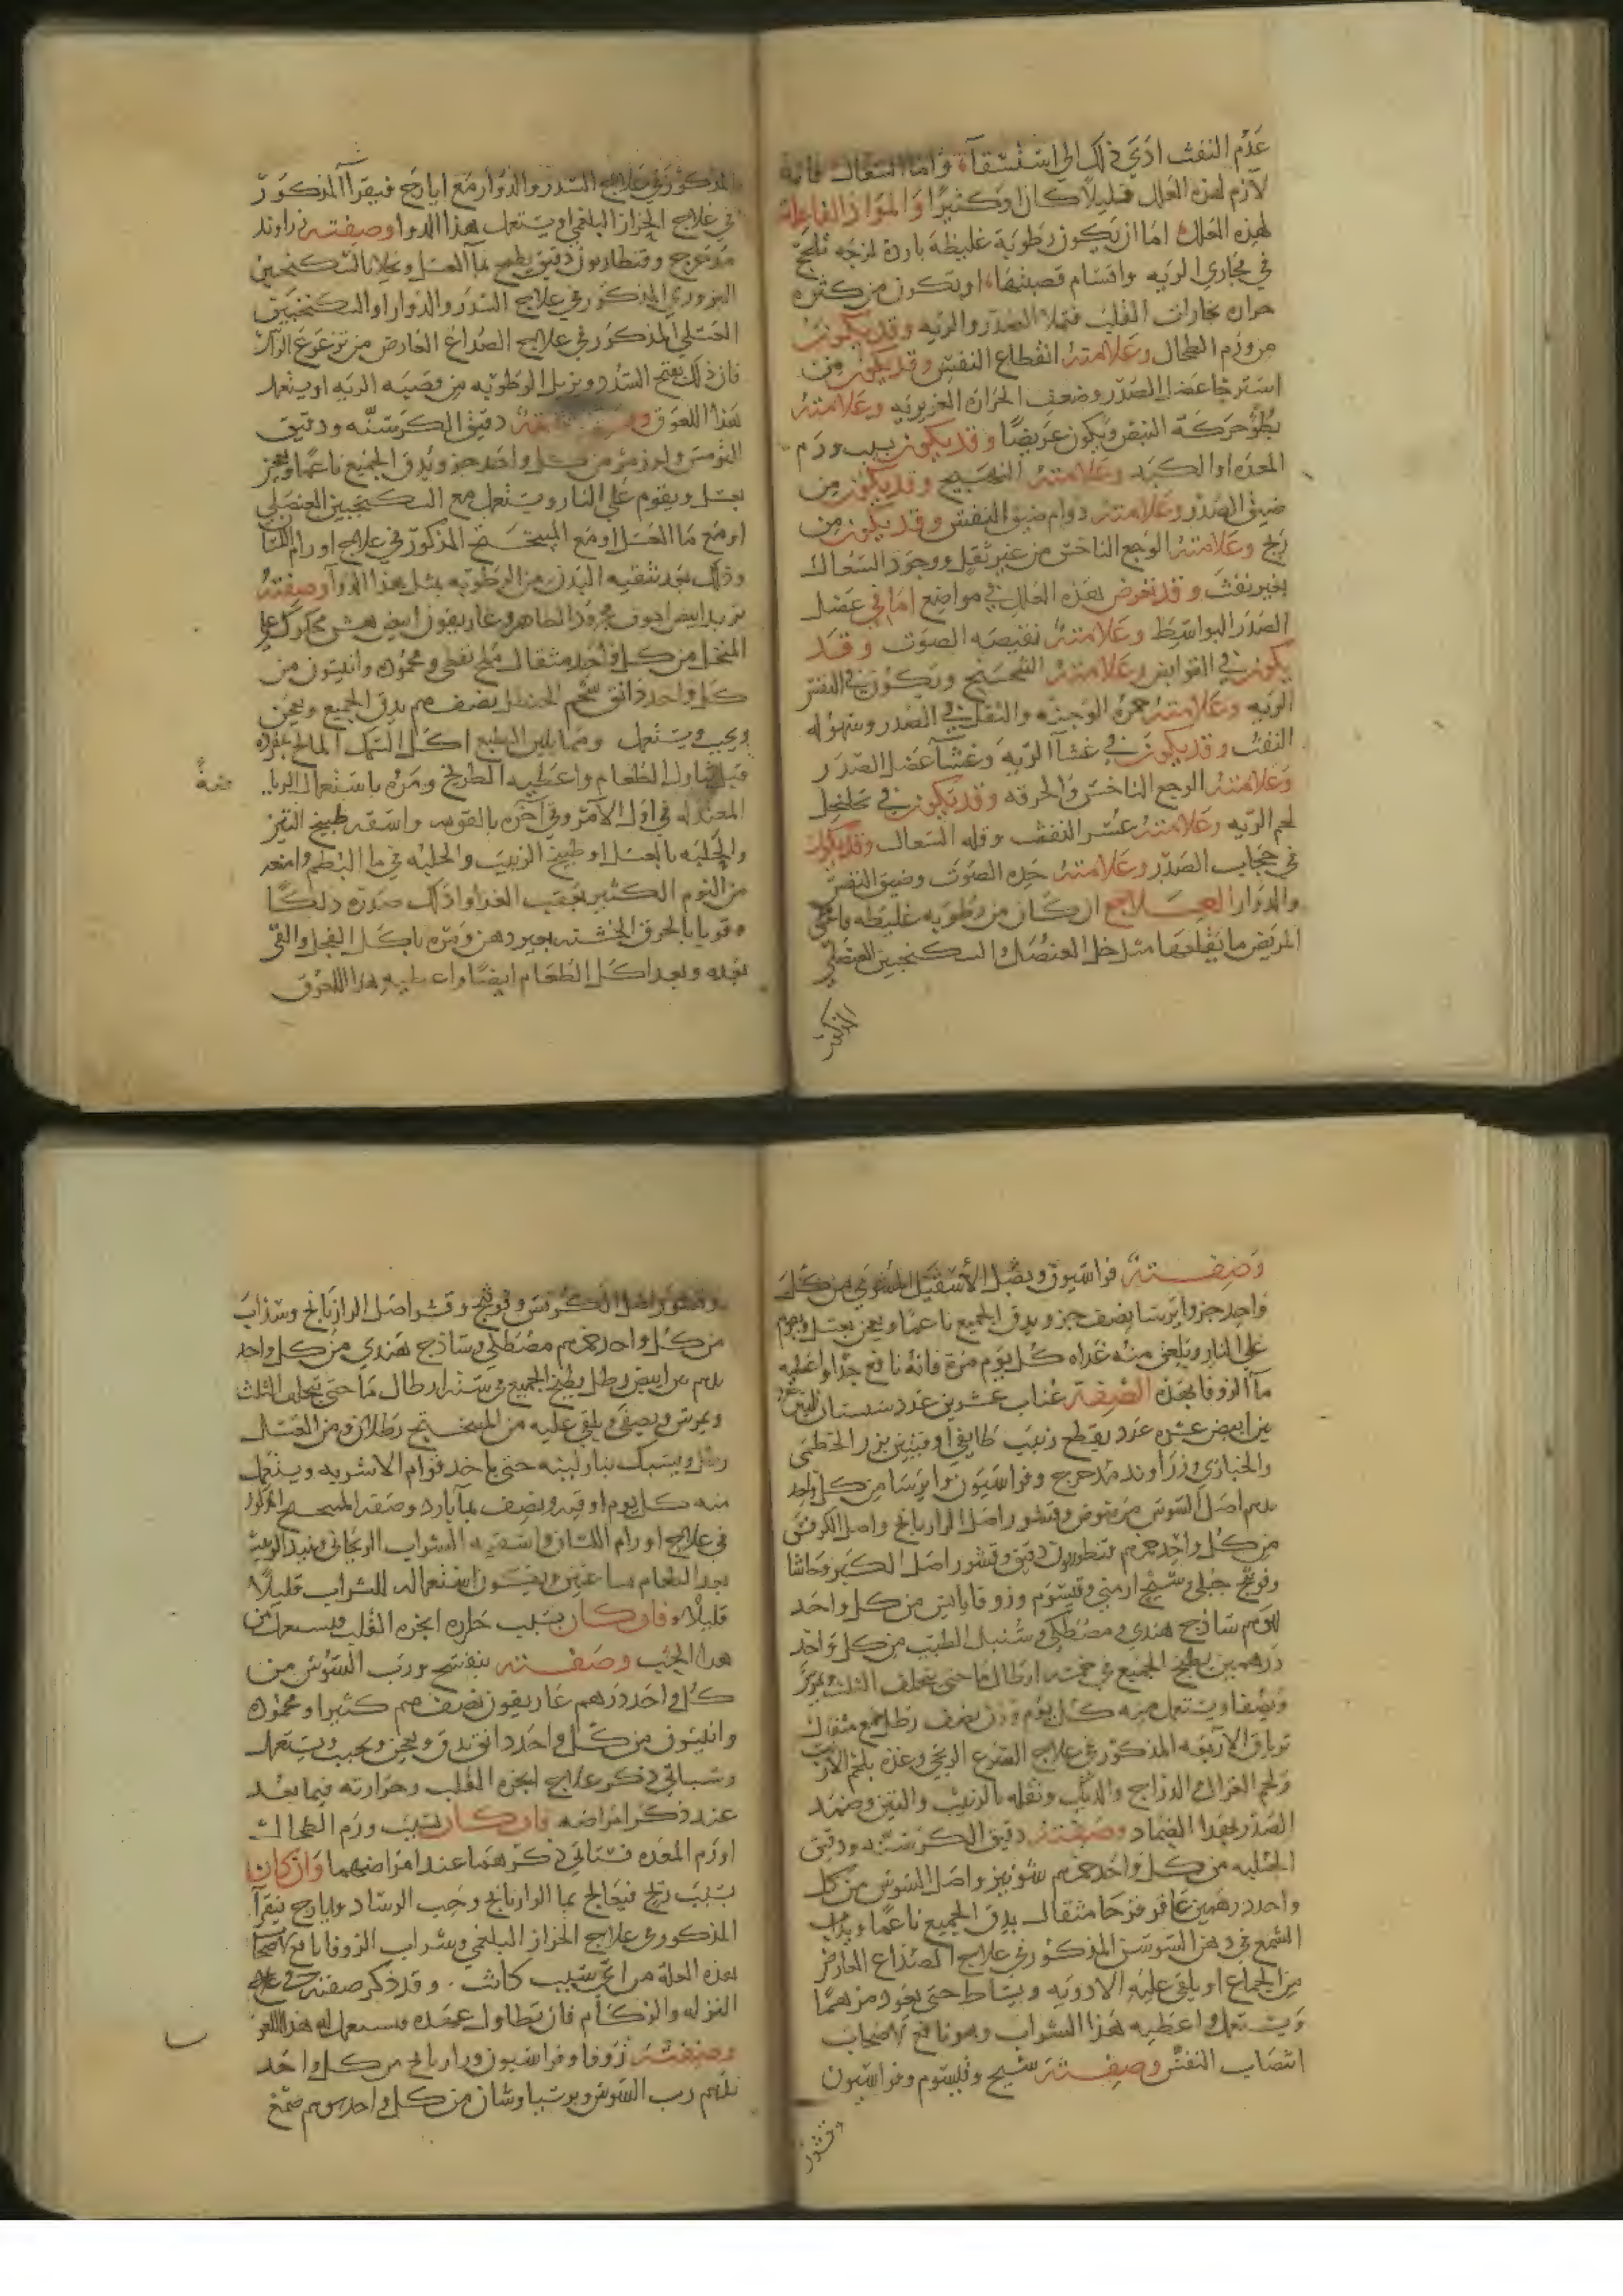 عدم النفث ادي ذلك الي استسقاء واما السعال فانه
لازم لهذه العلل قليلا كان او كثيرا والمواد الفاعلة
لهذه العلل اما ان يكون رطوبة غليظة باردة لزجه تلحج
في مجاري الريه واقسام قصبتها او يتكون من كثرة
حرارة بخارات القلب فتملا الصدر والريه وقد يكون
من ورم الطحال وعلامته انقطاع النفس وقد يكون من
استرخا عضل الصدر وضعف الحرارة الغريزيه وعلامته
بطؤ حركة النبض ويكون عريضا وقد يكون بسبب ورم
المعده او الكبد وعلامته التهبيج وقد يكون من
ضيق الصدر وعلامته دوام ضيق النفس وقد يكون من
ريح وعلامته الوجع الناخس من غير ثقل ووجود السعال
بغير نفث وقد تعرض هذه العلل في مواضع اما في عضل
الصدر البواسط وعلامته نقيصه الصوت وقد
يكون في القوابض وعلامته التنحنح ويكون في النفس
الريه وعلامته حمرة الوجنه والثقل في الصدر وسهوله
النفث وقد يكون في غشآ الريه وغشآ عضل الصدر
وعلامته الوجع الناخس والحرقه وقد يكون في تخلخل
لحم الريه وعلامته عسر النفث وقله السعال وقد يكون
في حجاب الصدر وعلامته حده الصوت وضيق النفس
والدوار العلاج ان كان من رطوبه غليظه فاعطي
المريض ما يقلعها مثل خل العنصل والسكنجبين العنصلي
المذكور
المذكور في علاج السدر والدوار مع ايارج فيقرآ المذكور
في علاج الحزاز البلغمي او يستعمل هذا الدوا وصفته زراوند
مدحرج وقنطاريون دقيق يطبخ بمآ العسل ويحلا بالسكنجبين
البزوري المذكور في علاج السدر والدوار او السكنجبين
العسلي المذكور في علاج الصداع العارض من تزعزع الراس
فان ذلك يفتح السدد ويزيل الرطوبه من قصبه الريه او يستعمل
هذا اللعوق وصفته دقيق الكرسنه ودقيق
الترمس ولوز مر من كل واحد جزو يدق الجميع ناعما ويعجن
بعسل ويقوم علي النار ويستعمل مع السكنجبين العنصلي
او مع ما العسل او مع الميبختج المذكور في علاج اورام اللسان
وذلك بعد تنقيه البدن من الرطوبه بمثل هذا الدوآ وصفته
تربد ابيض اجوف مجرود الظاهر وغاريقون ابيض هش محكوك علي
المنخل من كل واحد مثقال ملح نفطي ومحموده وانيسون من
كل واحد دانق شحم الحنظل نصف درهم يدق الجميع ويعجن
ويحبب ويستعمل ومما يلين الطبع اكل السمك المالح
قبل تناول الطعام واعطيه الطريخ ومره باستعمال الرياضة
المعتدله في اول الامر وفي آخره بالقويه واسقه طبيخ التين
والحلبه بالعسل او طبيخ الزبيب والحلبه في ما المطر وامنعه
من النوم الكثير بعقب الغذا وادلك صدره دلكا
قويا بالخرق الخشنه بغير دهن ومره باكل الفجل والقي
بعده وبعد اكل الطعام ايضا واعطيه هذا اللعوق
وصفته فراسيون وبصل الاسقيل المشوي من كل
واحد جزو ايرسا نصف جزو يدق الجميع ناعما ويعجن بعسل ويقوم
علي النار ويلعق منه غداه كل يوم مرة فانه نافع جدا واعطيه
مآ الزوفا بهذه الصفة عناب عشرين عدد سبستان ثلاثين عدد
تين ابيض عشره عدد يقطع زبيب طايفي اوقيتين بزر الخطمي
والخبازي وزراوند مدحرج وفراسيون وايرسا من كل واحد
درهم اصل السوس مرضوض وقشور اصل الرازيانج واصل الكرفس
من كل واحد درهم قنطوريون دقيق وقشور اصل الكبر وحاشا
وفوتنج جبلي وشيح ارمني وقيسوم وزوفا يابس من كل واحد
درهم ساذج هندي ومصطكي وسنبل الطيب من كل واحد
درهمين يطبخ الجميع في خمسه ارطال ما حتي يتخلف الثلث ويمرس
ويصفا ويستعمل منه كل يوم وزن نصف رطل مع مثقال
ترياق الاربعه المذكور في علاج الصرع الريحي وغذه بلحم الارنب
ولحم الغزال والدراج والديك ونقله بالزبيب والتين وضمد
الصدر بهذا الضماد وصفته دقيق الكرسنه ودقيق
الحلبه من كل واحد درهم شونيز واصل السوس من كل
واحد درهمين عاقر قرحا مثقال يدق الجميع ناعما ويذاب
الشمع في دهن السوسن المذكور في علاج الصداع العارض
من الجماع او يلقي عليه الادويه ويساط حتي يعود مرهما
ويستعمل واعطيه هذا الشراب وهو نافع لاصحاب
انتصاب النفس وصفته شيح وقيسوم وفراسيون
وقشور
وقشور اصل الكرفس وفوتنج وقشر اصل الرازيانج وسذاب
من كل واحد درهم مصطكي وساذج هندي من كل واحد
درهم تين ابيض رطل يطبخ الجميع في سته ارطال ما حتي يتخلف الثلث
ويمرس ويصفي ويلقي عليه من الميبختج رطلان ومن العسل
رطل ويسبك بنار لينه حتي ياخذ قوام الاشربه ويستعمل
منه كل يوم اوقيه ونصف بمآ بارد وصفه الميبختج المذكور
في علاج اورام اللسان واسقيه الشراب الريحاني ونبيذ الزبيب
بعد الطعام بساعتين ويكون استعماله للشراب قليلا
قليلا فان كان بسبب حراره ابخره القلب فيستعمل من
هذا الحب وصفته بنفسج ورب السوس من
كل واحد درهم غاريقون نصف درهم كثيرا ومحموده
وانيسون من كل واحد دانق يدق ويعجن ويحبب ويستعمل
وسياتي ذكر علاج ابخره القلب وحرارته فيما بعد
عند ذكر امراضه فان كان بسبب ورم الطحال
او ورم المعده فسياتي ذكرهما عند امراضهما وان كان
بسبب ريح فيعالج بما الرازيانج وحب الرشاد وايارج فيقرآ
المذكور في علاج الحزاز البلغمي وشراب الزوفا نافع لاصحاب
هذه العلة من اي سبب كانت وقد ذكر صفته في علاج
النزله والزكام فان تطاول عهده فيستعمل له هذا اللعوق
وصفته زوفا وفراسيون ورازيانج من كل واحد
درهم رب السوس وبرسياوشان من كل واحد درهم صمغ